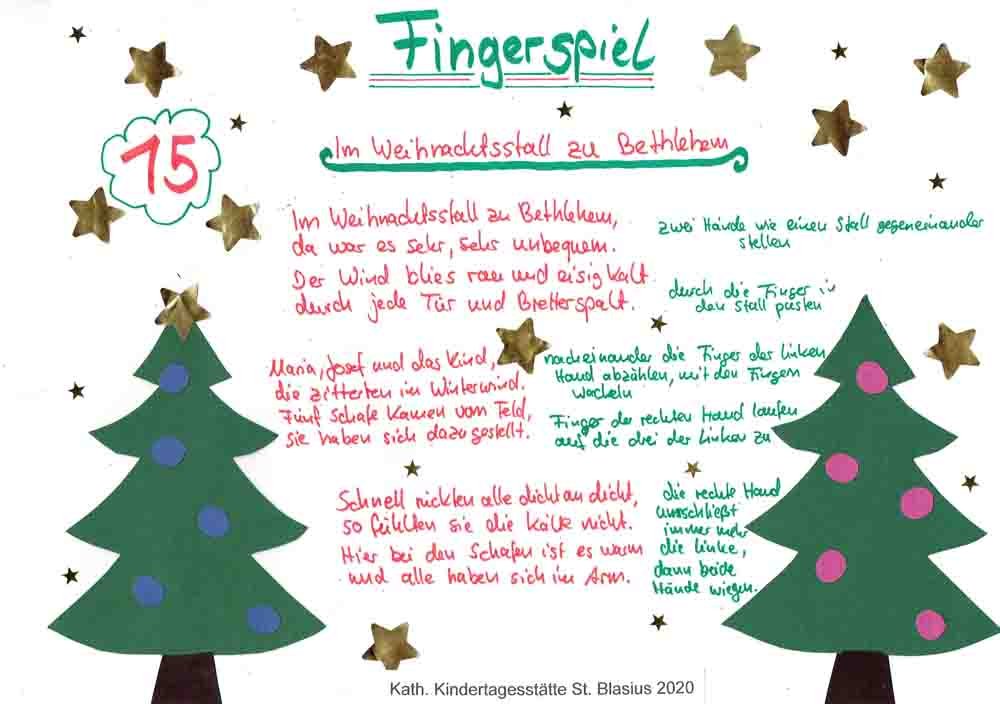 Fingerspiel
15
Im Weihnachtsstall zu Bethlehem
Im Weihnachtsstall zu Bethlehem,
da war es sehr, sehr unbequem.
Der Wind blies rau und eisig kalt
durch jede Tür und Bretterspalt.
zwei Hände wie einen Stall gegeneinander
stellen
durch die Finger in
den Stall pusten
Maria, Josef und das Kind,
die zitterten im Winterwind.
Fünf Schafe kamen vom Feld,
sie haben sich dazugestellt.
nacheinander die Finger der linken
Hand abzählen, mit den Fingern
wackeln
Finger der rechten Hand laufen
auf die drei der linken zu
Schnell rückten alle dicht an dicht,
so fühlten sie die Kälte nicht.
Hier bei den Schafen ist es warm
und alle haben sich im Arm.
die rechte Hand
umschließt
immer mehr
die linke,
dann beide
Hände wiegen.
Kath. Kindertagesstätte St. Blasius 2020